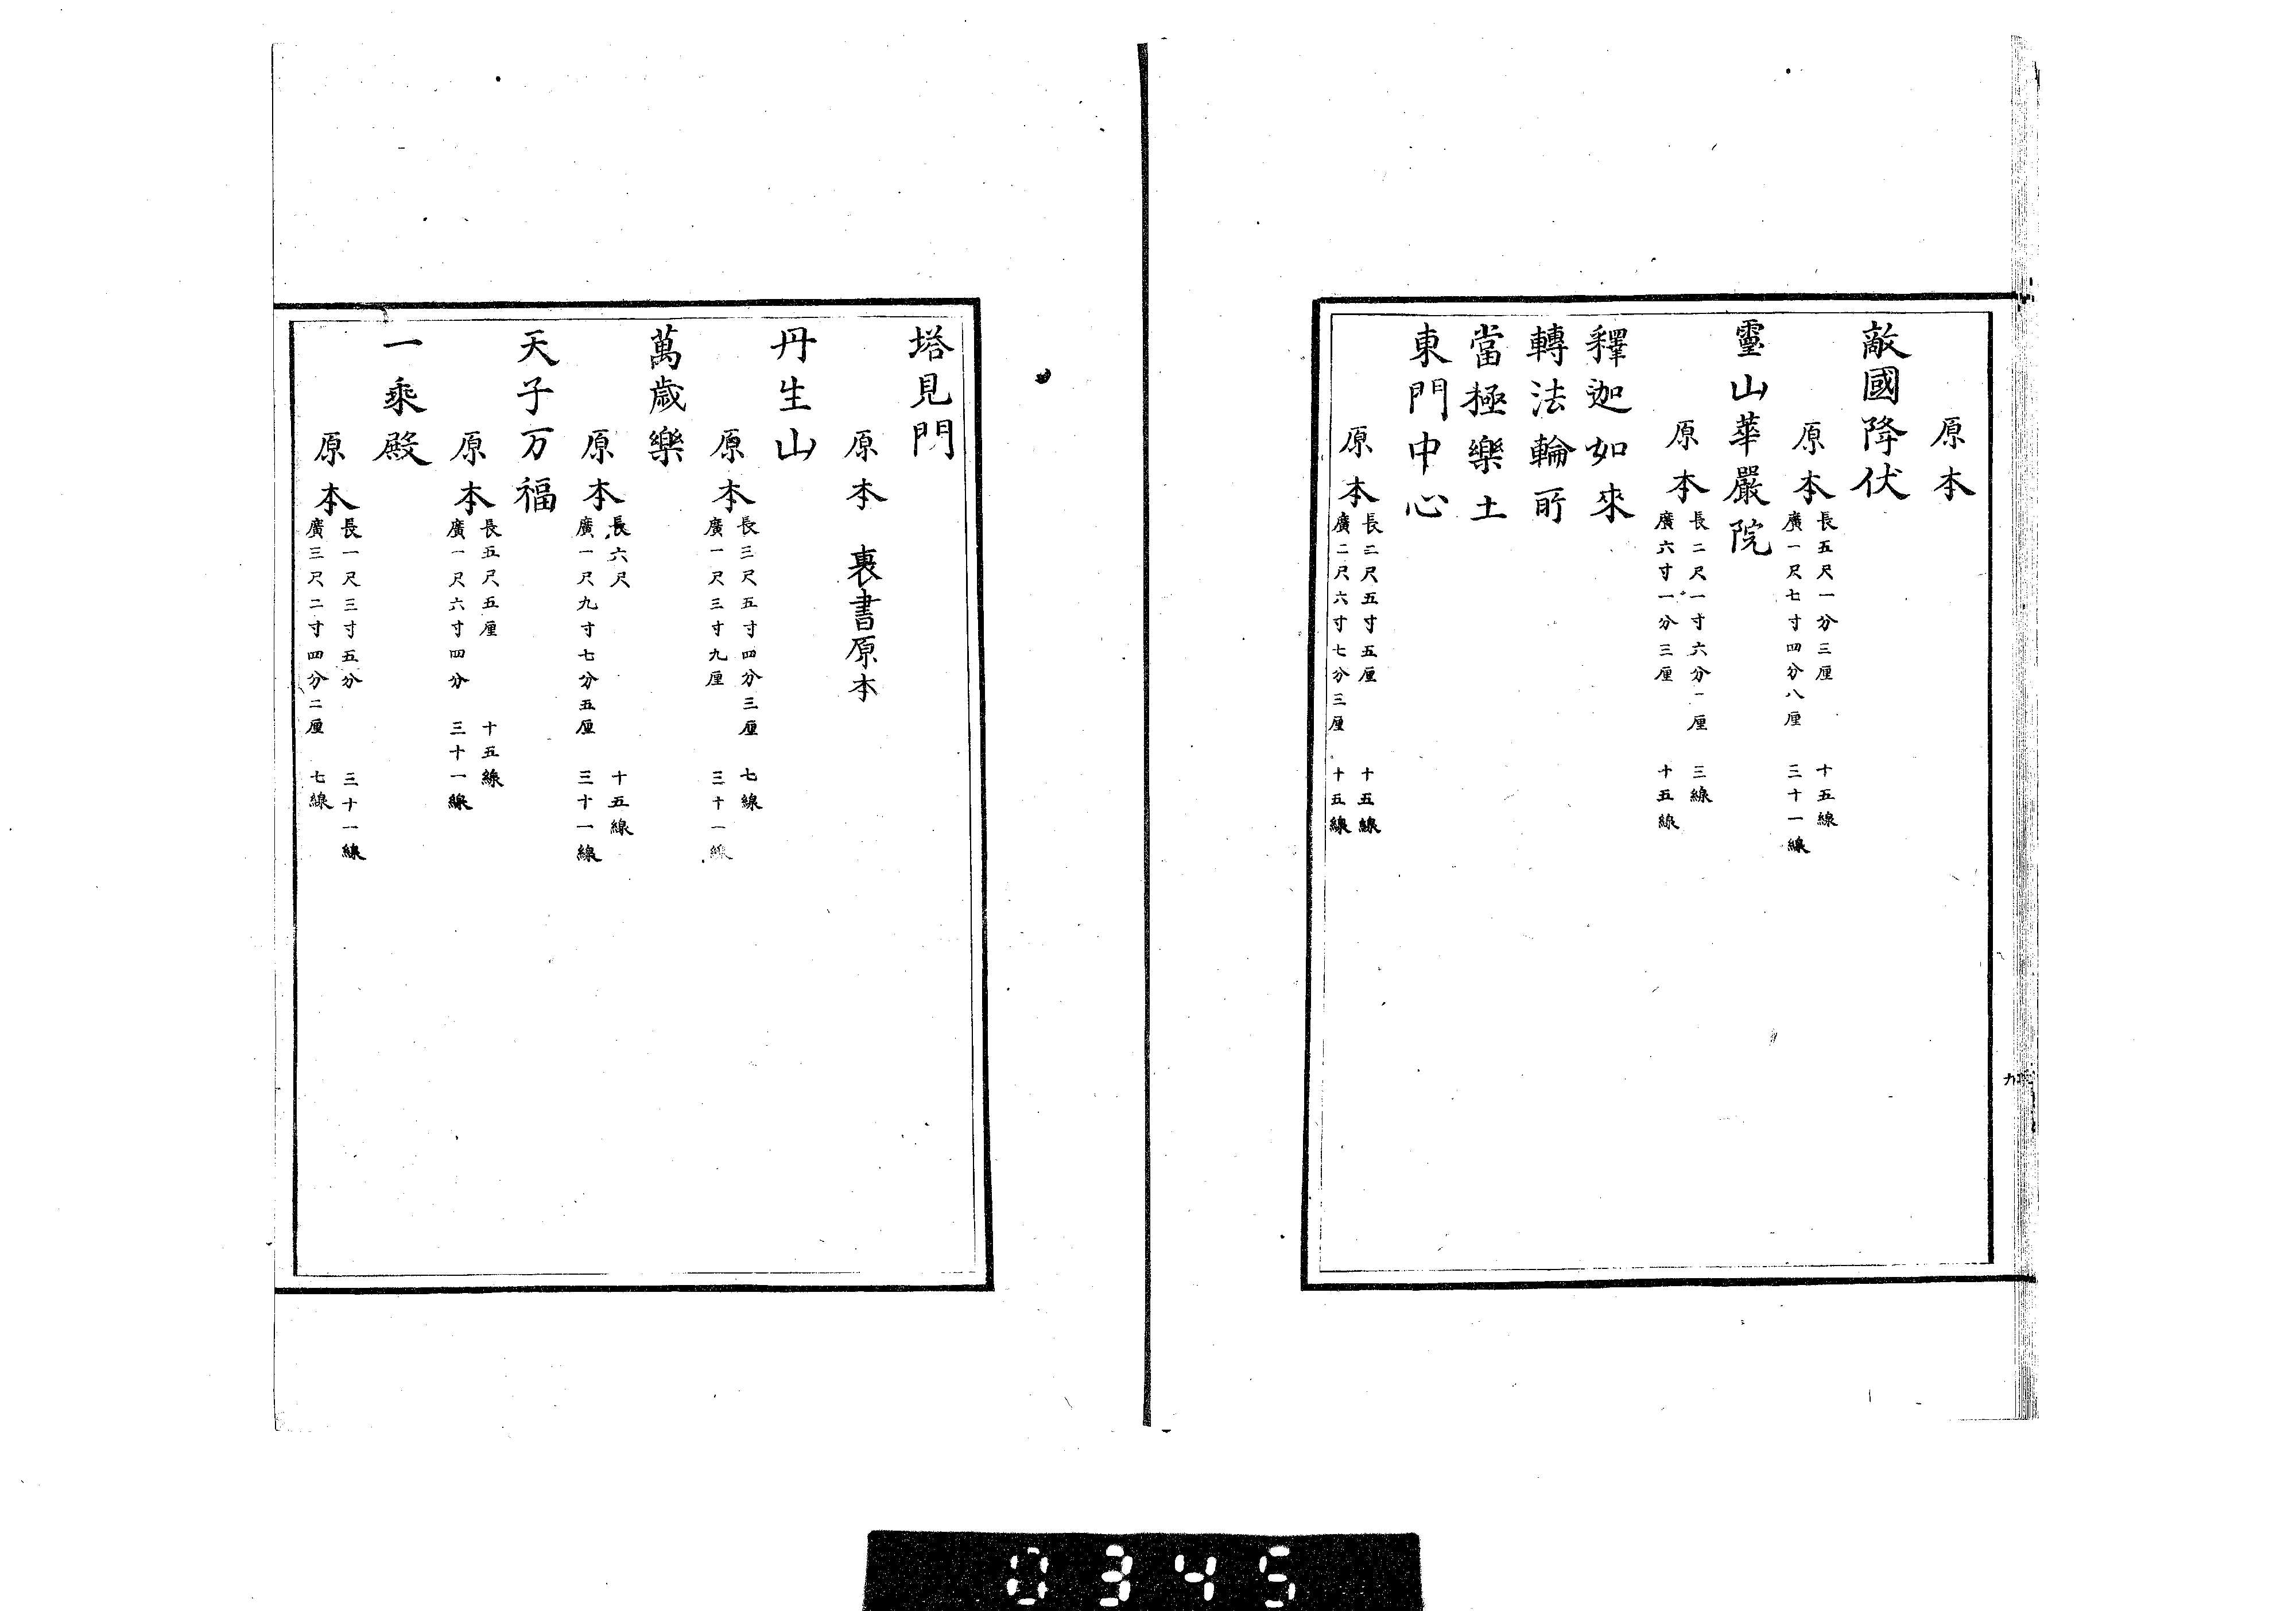 原本
敵國降伏
原本
長五尺一分三厘 十五線
廣一尺七寸四分八厘 三十一線
靈山華嚴院
原本
長二尺一寸六分一厘 三線
廣六寸一分三厘 十五線
釋迦如來
轉法輪所
當極樂土
東門中心
原本
長二尺五寸五厘 十五線
廣二尺六寸七分三厘 十五線
塔見門
原本 裏書原本
丹生山
原本
長三尺五寸四分三厘 七線
廣一尺三寸九厘 三十一線
萬歳樂
原本
長六尺 十五線
廣一尺九寸七分五厘 三十一線
天子万福
原本
長五尺五厘 十五線
廣一尺六寸四分 三十一線
一乘殿
原本
長一尺三寸五分 三十一線
廣三尺二寸四分二厘 七線
0345